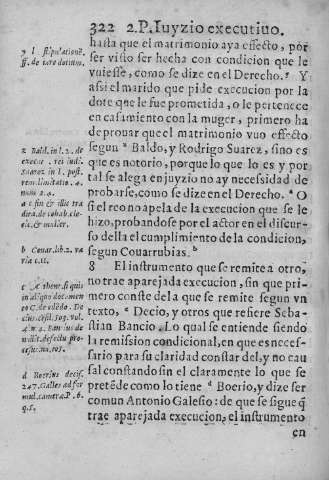 322 2.P. Iuyzio executiuo.
hasta que el matrimonio aya effecto, por
ser visto ser hecha con condicion que le
vuiesse, como se dize en el Derecho. y Y
assi el marido que pide execucion por la
dote que le fue prometida, o le pertenece
en casamiento con la muger, primero ha
de prouar que el matrimonio vuo effecto
segun z Baldo, y Rodrigo Suarez, sino es
que es notorio, porque lo que lo es y por
tal se alega en juyzio no ay necessidad de
probarse, como se dize en el Derecho. a O
si el reo no apela de la execucion que se le
hizo, probandose por el actor en el discur-
so della el cumplimiento de la condicion,
segun Couarrubias. b
8 El instrumento que se remite a otro,
no trae aparejada execucion, sin que pri-
mero conste de la que se remite segun vn
texto, c Decio, y otros que refiere Seba-
stian Bancio. Lo qual se entiende siendo
la remission condicional, en que es neces-
sario para su claridad constar del, y no cau
sal constando sin el claramente lo que se
pretēde como lo tiene d Boerio, y dize ser
comun Antonio Galesio: de que se sigue q̃
trae aparejada execucion, el instrumento
en
y l. stipulationē.
ff. de iure dotium.
z Bald. in l. 2. de
execut. rei iudi.
Suarez in l. post
rem
a c fin & illic tra
dita. de cohab. cle
ric. & mulier.
b Couar. lib. 2. va
ria c. 11.
d Boerius decis.
247. Galles ad for
mul. cameræ. P. 6.
q. 5.